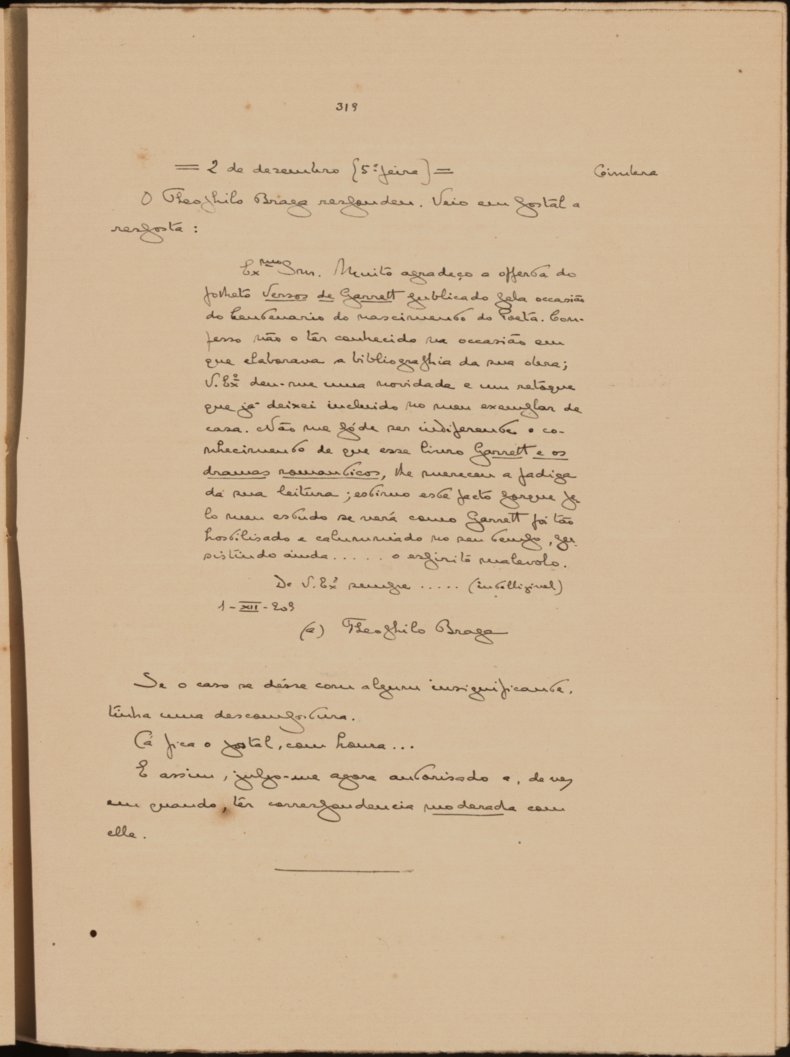 319
= 2 de dezembro (5.ª feira) = Coimbra
O Theophilo Braga respondeu. Veio em postal a
resposta:
Ex.mo Snr. Muito agradeço a offerta do
folheto Versos de Garrett publicado pela occasião
do Centenario do nascimento do Poeta. Con-
fesso não o têr conhecido na occasião em
que elaborava a bibliographia da sua obra;
V. Ex.ª deu-me uma novidade e um retoque
que já deixei incluido no meu exemplar de
casa. Não me póde ser indiferente o co-
nhecimento de que esse livro Garrett e os
dramas romanticos, lhe mereceu a fadiga
da sua leitura; estimo este facto porque pe-
lo meu estudo se verá como Garrett foi tão
hostilisado e calumniado no seu tempo, per-
sistindo ainda ..... o espirito malevolo.
De V. Ex.ª sempre ..... (intelligivel)
1-XII-909
(a) Theophilo Braga
Se o caso se désse com algum insignificante,
tinha uma descompostura.
Cá fica o postal, com honra...
E assim, julgo-me agora autorisado a, de vez
em quando, têr correspondencia moderada com
elle.